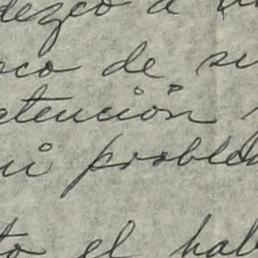 dezco a
oco de su
atención
mi problem
to el hab